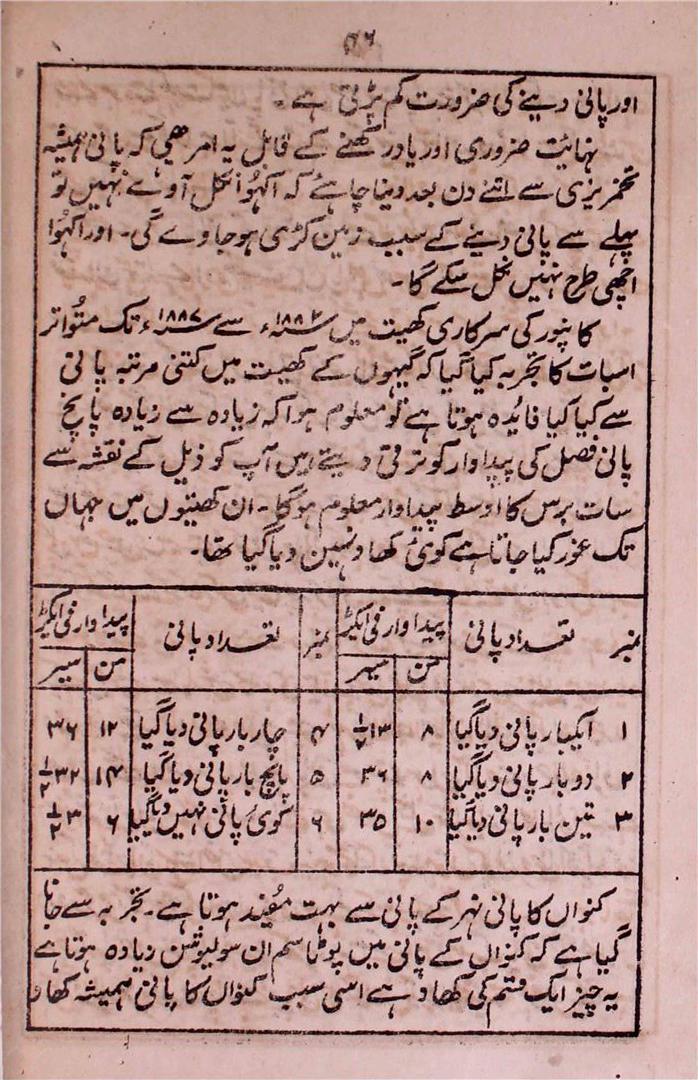 ۵۶
اور پانی دینے کی ضرورت کم پڑتی ہے۔
نہائت ضروری اور یاد رکھنے کے قابل یہ امر ھی کہ پانی ہمیشہ
تخمریزی سے اتنے دن بعد دینا چاہئے کہ اکہوا نکل آوے نہیں تو
پہلے سے پانی دینے کے سبب زمین کڑی ہوجاوے گی۔ اور اکہوا
اچھی طرح نہیں نکل سکے گا۔
کانپور کی سرکاری کھیت میں ۱۸۸۲ء سے ۱۸۸۷ء تک متواتر
اسبات کا تجربہ کیا گیا کہ گیہوں کے کھیت میں کتنی مرتبہ پانی
سے کیا کیا فائدہ ہوتا ہے تو معلوم ہوا کہ زیادہ سے زیادہ پانچ
پانی فصل کی پیداوار کو ترقی دیتے ہیں آپ کو ذیل کے نقشہ سے
سات برس کا اوسط پیداوار معلوم ہوگا۔ ان کھیتوں میں جہاں
تک غور کیا جاتا ہے کوئی کھاد نہین دیا گیا تھا۔
نمبر تعداد پانی پیداوار فی ایکڑ نمبر تعداد پانی پیداوار فی ایکڑ
من سیر من سیر
۱ ایکبار پانی دیا گیا ۸ ۱۳½ ۴ چار بار پانی دیا گیا ۱۲ ۳۶
۲ دو بار پانی دیا گیا ۸ ۳۶ ۵ پانچ بار پانی دیا گیا ۱۴ ۳۲½
۳ تین بار پانی دیا گیا ۱۰ ۳۵ ۶ کوئی پانی نہیں دیا گیا ۶ ۳½
کنواں کا پانی نہر کے پانی سے بہت مفید ہوتا ہے۔ تجربہ سے جانا
گیا ہے کہ کنواں کے پانی میں پوٹاسم ان سولیوشن زیادہ ہوتا ہے
یہ چیز ایک قسم کی کھاد ہے اسی سبب کنواں کا پانی ہمیشہ کھاد